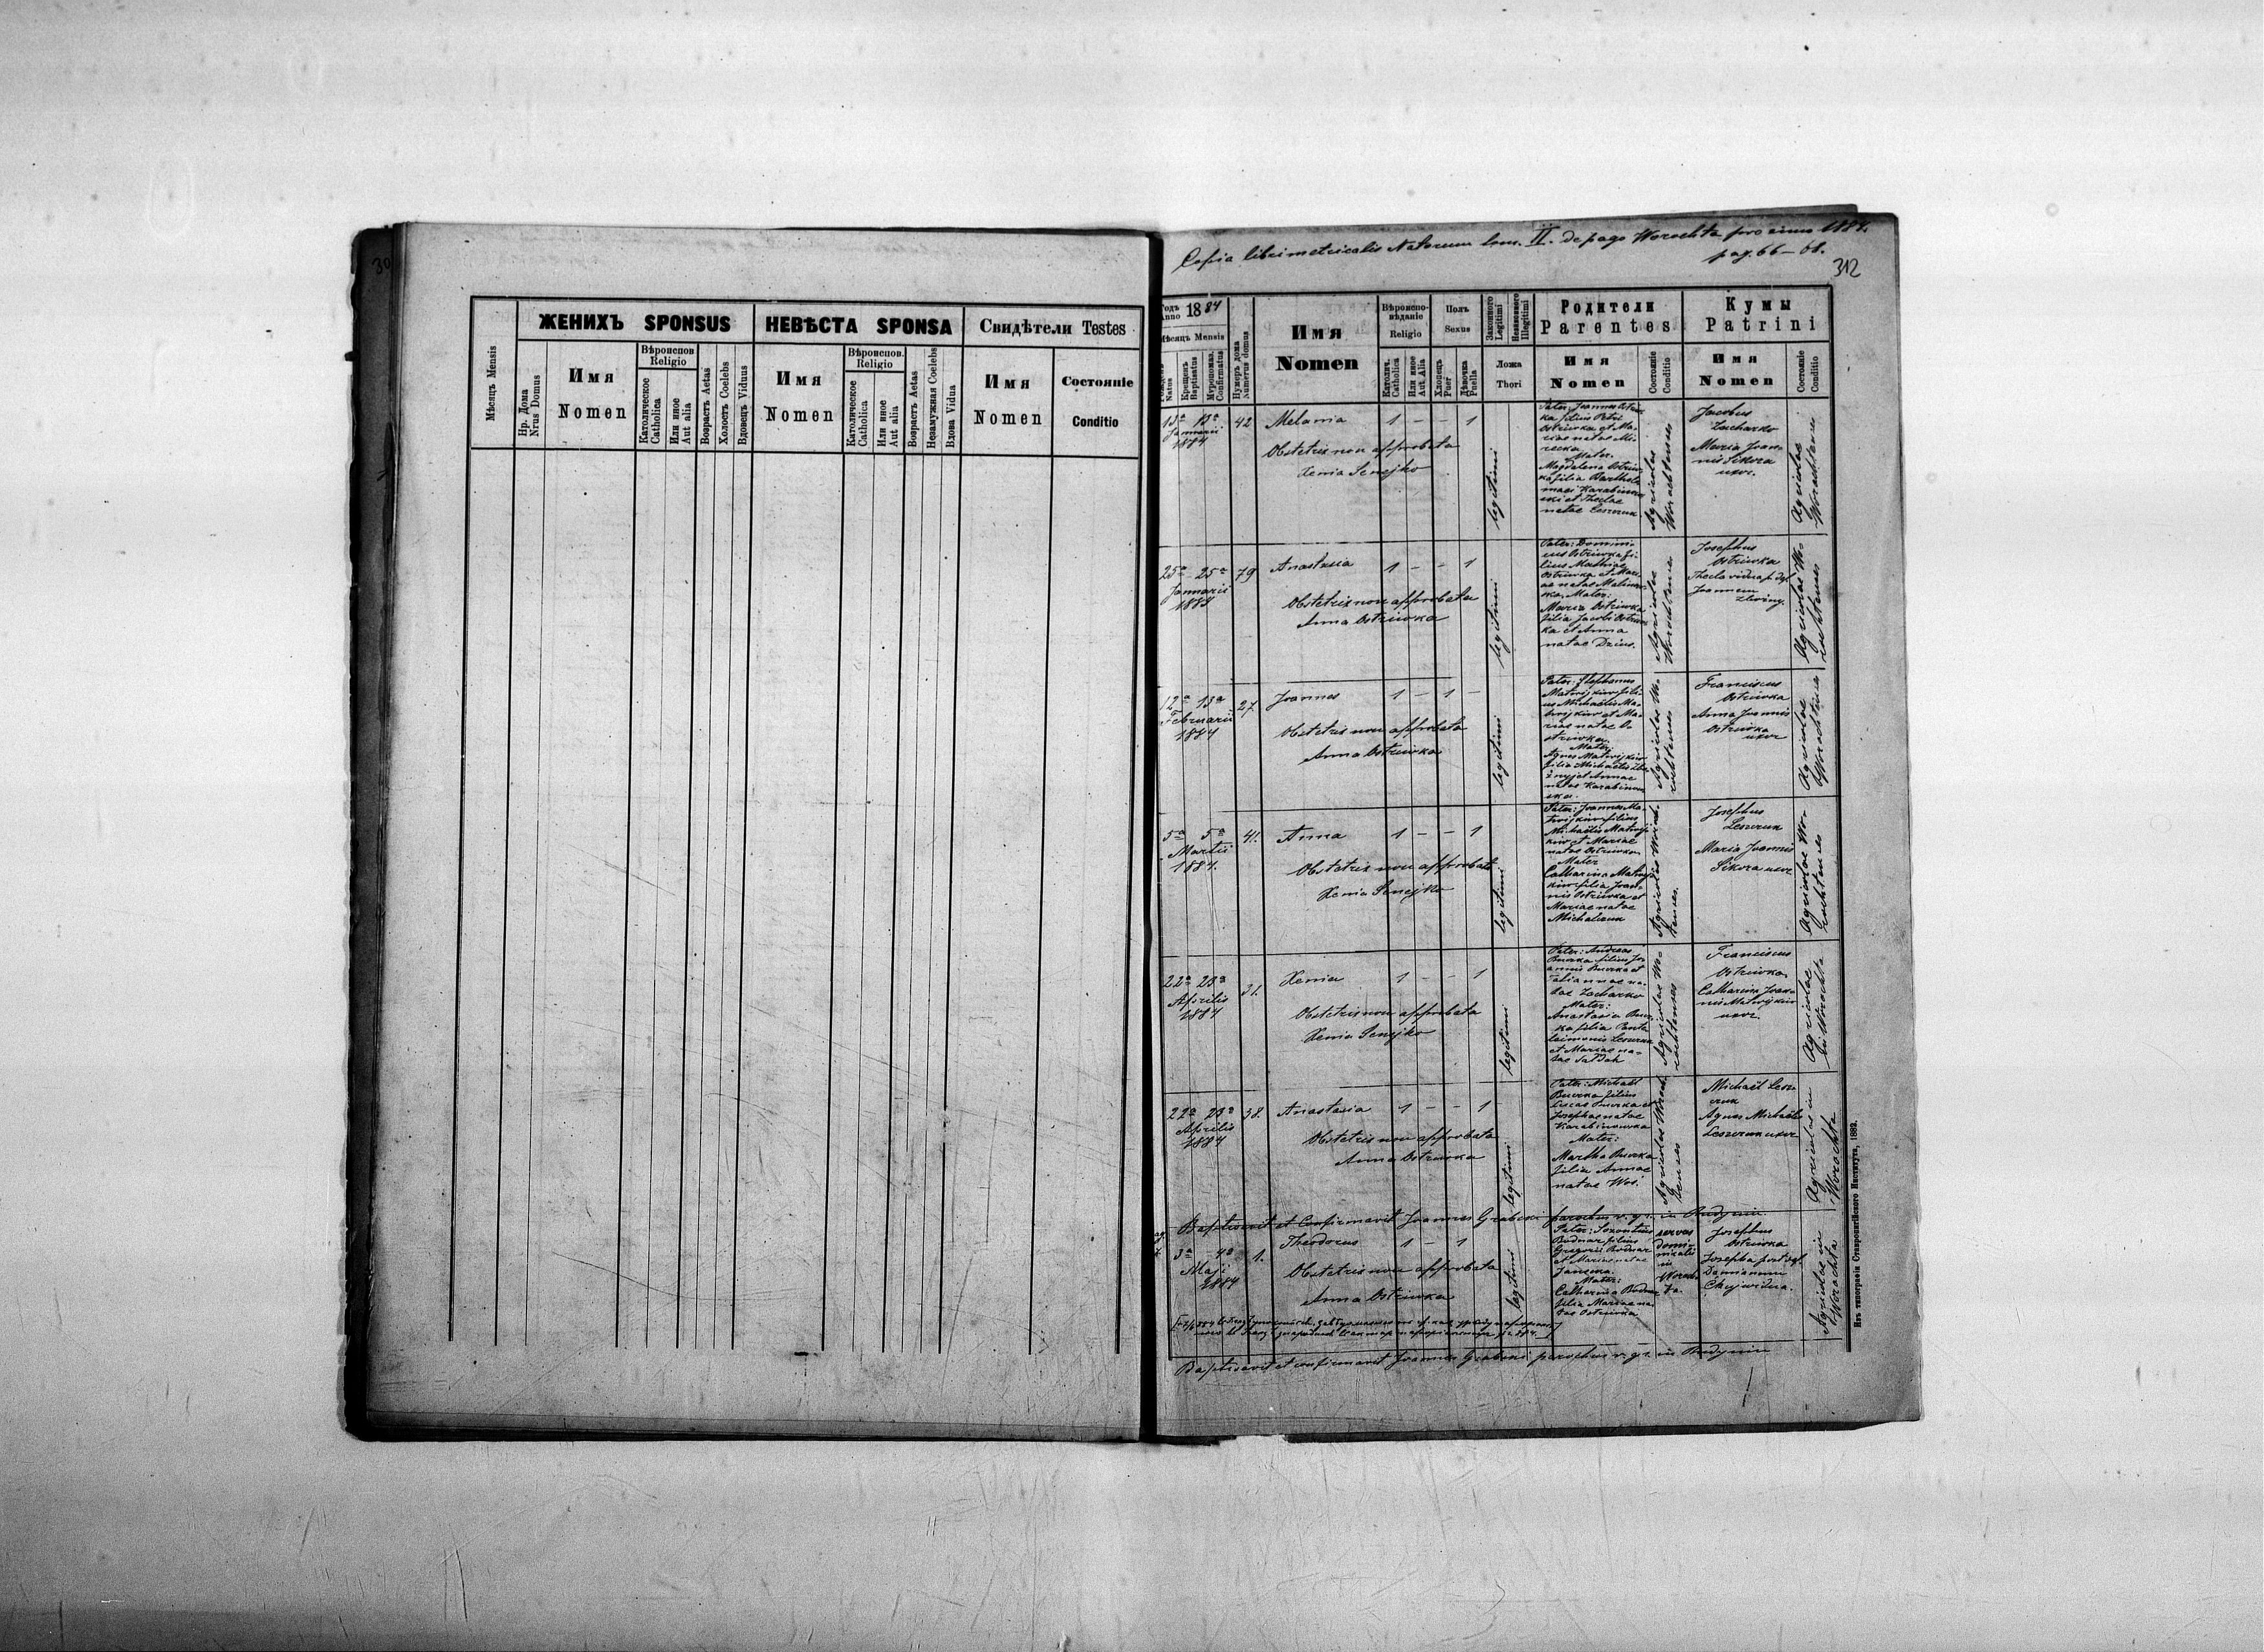 30
ЖЕНИХЪ SPONSUS
НЕВѢСТА SPONSA
Свидѣтели Testes
Мѣсяцъ Mensis
Нр. Дома
Nrus Domus
Имя
Nomen
Вѣроиспов.
Religio
Католическое
Catholica
Или иное
Aut alia
Возрастъ Aetas
Холостъ Coelebs
Вдовецъ Viduus
Имя
Nomen
Вѣроиспов.
Religio
Католическое
Catholica
Или иное
Aut alia
Возрастъ Aetas
Незамужная Coelebs
Вдова Vidua
Имя
Nomen
Состоянiе
Conditio
Copia libri metricalis Natorum tom. II. de pago Worochta pro anno 1884.
pag. 66 –
312
Годъ
Anno 1884
Мѣсяцъ Mensis
Natus
Крещенъ
Baptisatus
Мѵропомаз.
Confirmatus
Нумеръ дома
Numerus domus
Имя
Nomen
Вѣроиспо-
вѣданіе
Religio
Католич.
Catholica
Или иное
Aut. Alia
Полъ
Sexus
Хлопецъ
Puer
Дѣвочка
Puella
Законного
Legitimi
Незаконного
Illegitimi
Ложа
Thori
Родители
Parentes
Имя
Nomen
Состоянiе
Conditio
Кумы
Patrini
Имя
Nomen
Состоянiе
Conditio
13a 13a
Januarii
1884
42
Melania
1 – – 1
Obstetrix non approbata
Xenia Senejko
legitimi
Pater: Joannes Ostriw-
ka filius Petri
Ostriwka et Ma-
riae natae
Mater:
Magdalena Ostriw-
ka filia Bartholo-
maei Karabinow-
ski et Theclae
natae Leszczuk
Agricolae
Worochtenses
Jacobus
Zacharko
Maria Joan-
nis Sikora
uxor.
Agricolae
Worochtenses
25a 25a
Januarii
1884
79
Anastasia
1 – – 1
Obstetrix non approbata
Anna Ostriwka
legitimi
Pater: Domini-
cus Ostriwka fi-
lius Mathiae
Ostriwka et Mari-
ae natae
Mater:
Maria Ostriwka
filia Jacobi Ostriw-
ka et Anna
natae Dzius.
Agricolae
Worochtenses
Josephus
Ostriwka
Thecla vidua p. def.
Joannem
Agricolae Wo-
rochtenses
12a 13a
Februarii
1884
27
Joannes
1 – 1 –
Obstetrix non approbata
Anna Ostriwka
legitimi
Pater: Stephanus
Matwijkiw fili-
us Michaelis Ma-
twijkiw et Ma-
riae natae O-
striwka
Mater:
Agnes Matwijkiw
filia Michaelis
et Annae
natae Karabinow-
ska.
Agricolae Wo-
rochtenses
Franciscus
Ostriwka
Anna Joannis
Ostriwka
uxor
Agricolae
Worochtenses
5a 5a
Martii
1884.
41.
Anna
1 – – 1
Obstetrix non approbata
Xenia Senejko
legitimi
Pater: Joannes Ma-
twijkiw filius
Michaelis Matwij-
kiw et Mariae
natae Ostriwka
Mater
Catharina Matwij-
kiw filia Joan-
nis Ostriwka et
Mariae natae
Michalczuk
Agricolae Worocht-
enses.
Josephus
Leszczuk
Maria Joannis
Sikora uxor
Agricolae Wor-
ochtenses
22a 23a
Aprilis
1884
31.
Xenia
1 – – 1
Obstetrix non approbata
Xenia Senejko
legitimi
Pater: Andreas
Burka filius Jo-
annis Burka et
Julianae na-
tae Zacharko
Mater:
Anastasia Bur-
ka filia Panta-
leimonis Leszczuk
et Mariae na-
tae
Agricolae Wo-
rochtenses
Franciscus
Ostriwka
Catharina Joan-
nis Matwijkiw
uxor.
Agricolae
in Worochta
22a 23a
Aprilis
1884
38.
Anastasia
1 – – 1
Obstetrix non approbata
Anna Ostriwka
legitimi
Pater: Michael
Burka filius
Lucae Burka et
Josephae natae
Karabinowska
Mater:
Martha Burka
filia Annae
natae Wos.
Agricolae Woroch-
tenses
Michael Lesz-
czuk
Agnes Michaelis
Leszczuk uxor
Agricolae in
Worochta
Baptisavit et Confirmavit Joannes Grabski parochus r. gr. in Budynin
3a 4a
Maji
1884
1.
Theodorus
1 – 1
Obstetrix non approbata
Anna Ostriwka
legitimi
Pater: Sozontius
Bodnar filius
Gregorii Bodnar
et Mariae natae
Mater:
Catharina Bodnar
filia Mariae na-
tae Ostriwka
servus
domi-
nicalis
in
Woroch-
ta.
Josephus
Ostriwka
Josepha post def.
Damianum
vidua.
Agricolae in
Worochta
Baptisavit et confirmavit Joannes Grabski parochus r. gr. in Budynin
Изъ типографіи Ставропигійского Института, 1882.